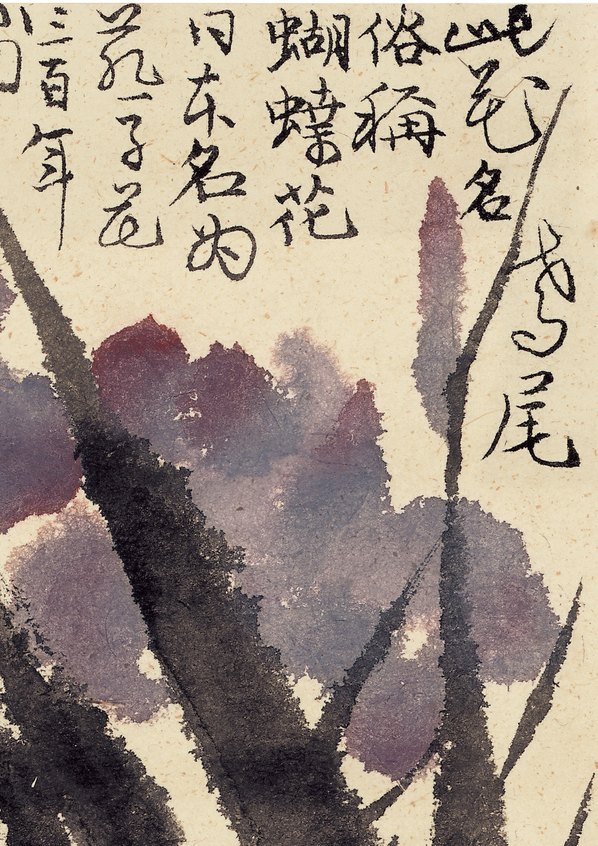 此花名
鸢尾
俗稱
蝴蝶花
日本名为
燕子花
三百年